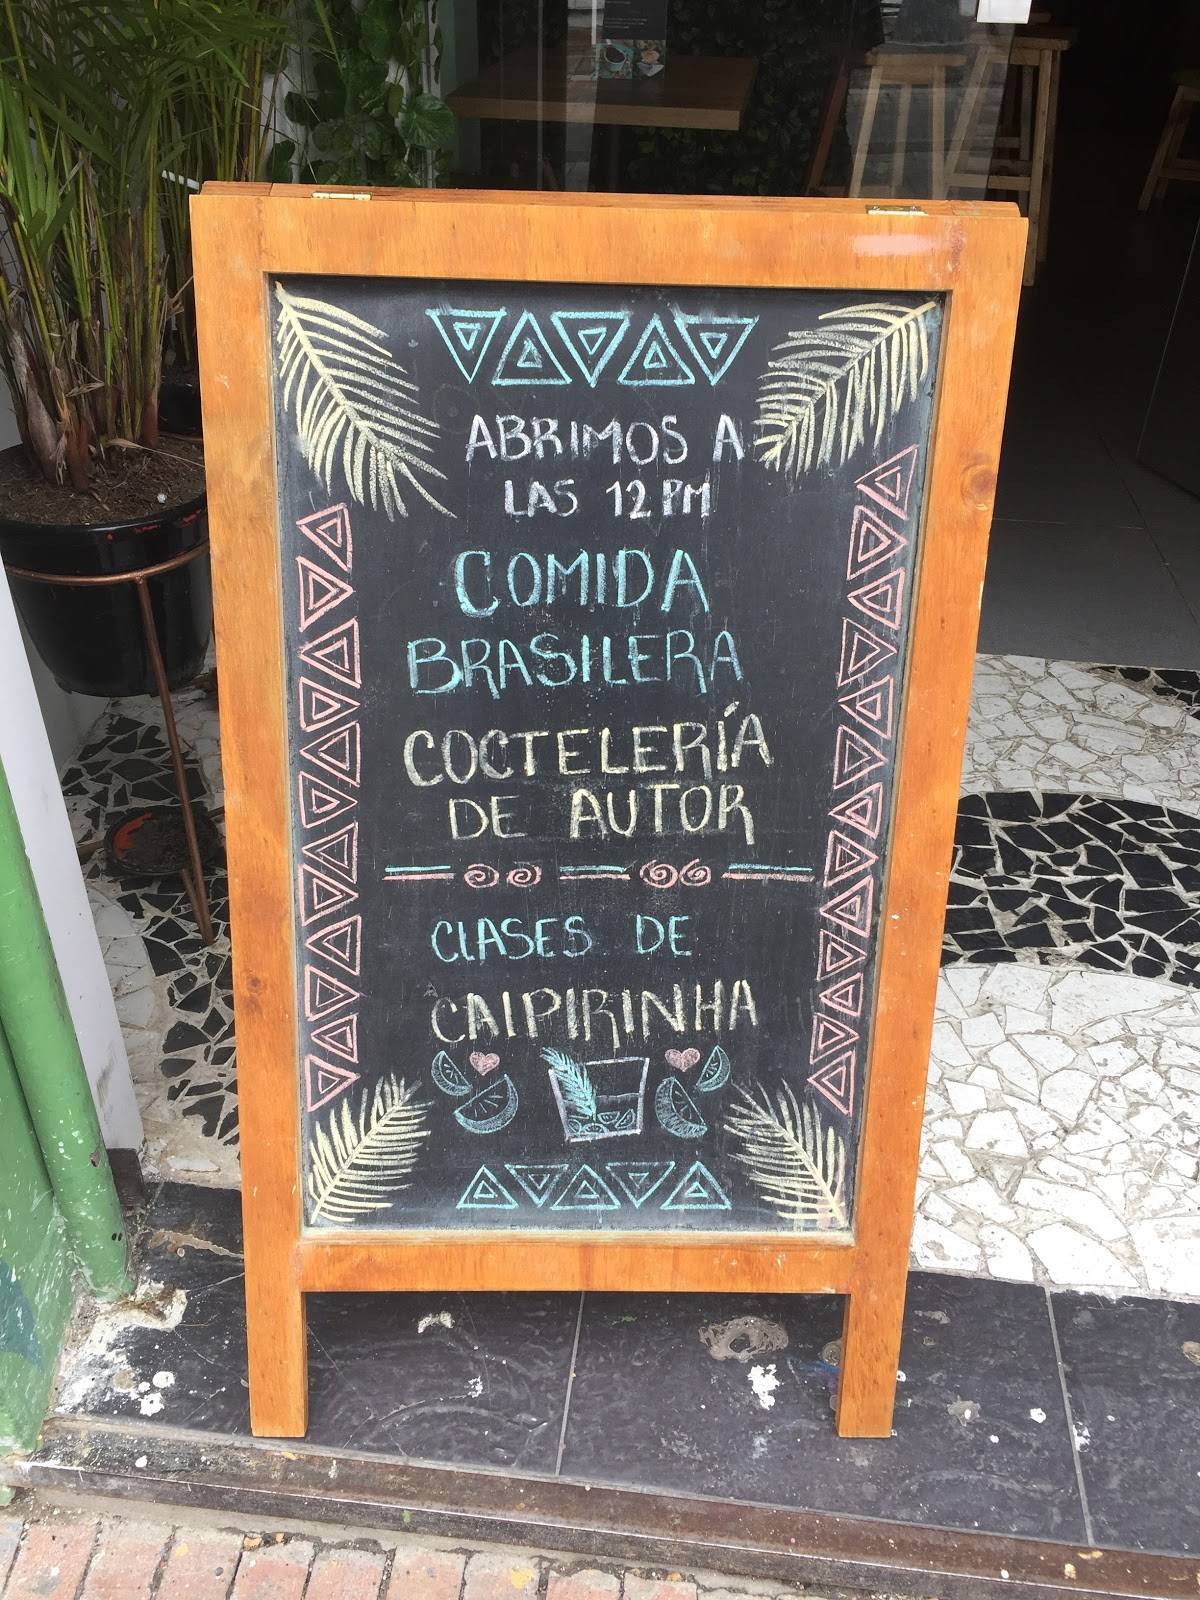 ABRIMOS A
LAS 12 PM
COMIDA
BRASILERA
COCTELERÍA
DE AUTOR
CLASES DE
CAIPIRINHA